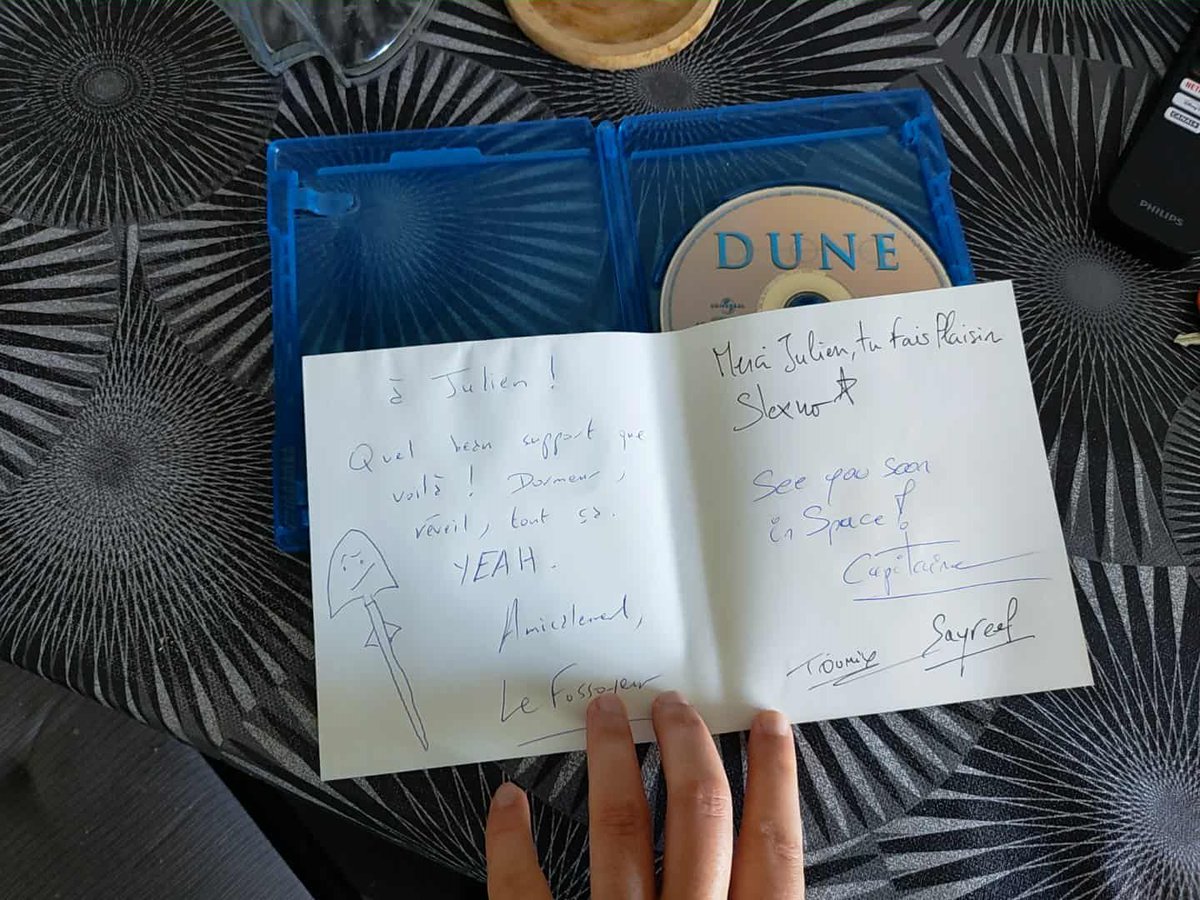 NETF
CANAL+
PHILIPS
DUNE
UNIVERSAL
à Julien !
Quel beau support que
voilà ! Dormeur,
réveil, tout ça.
YEAH.
Amicalement,
Le Fossoyeur
Merci Julien, tu fais plaisir
Slexno
See you soon
in Space !
Capitaine
Sayreef